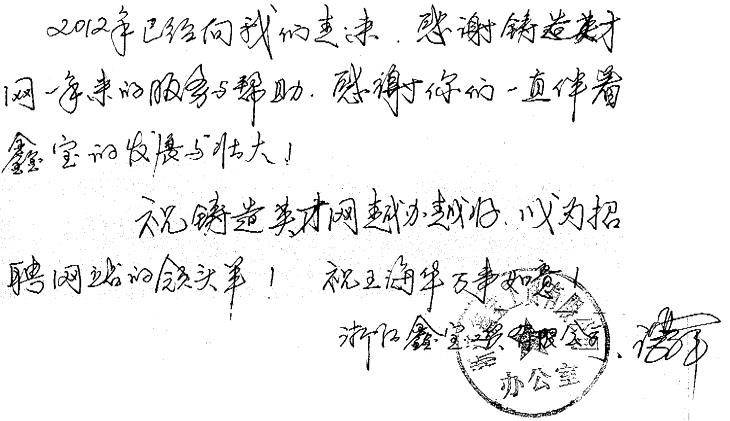 2012年已经向我们走来，感谢铸造英才
网一年来的服务与帮助．感谢你们一直伴着
鑫宝的发展与壮大！
祝铸造英才网越办越好，成为招
聘网站的领头羊！ 祝王海华万事如意！
浙江鑫宝 有限公司、
办公室